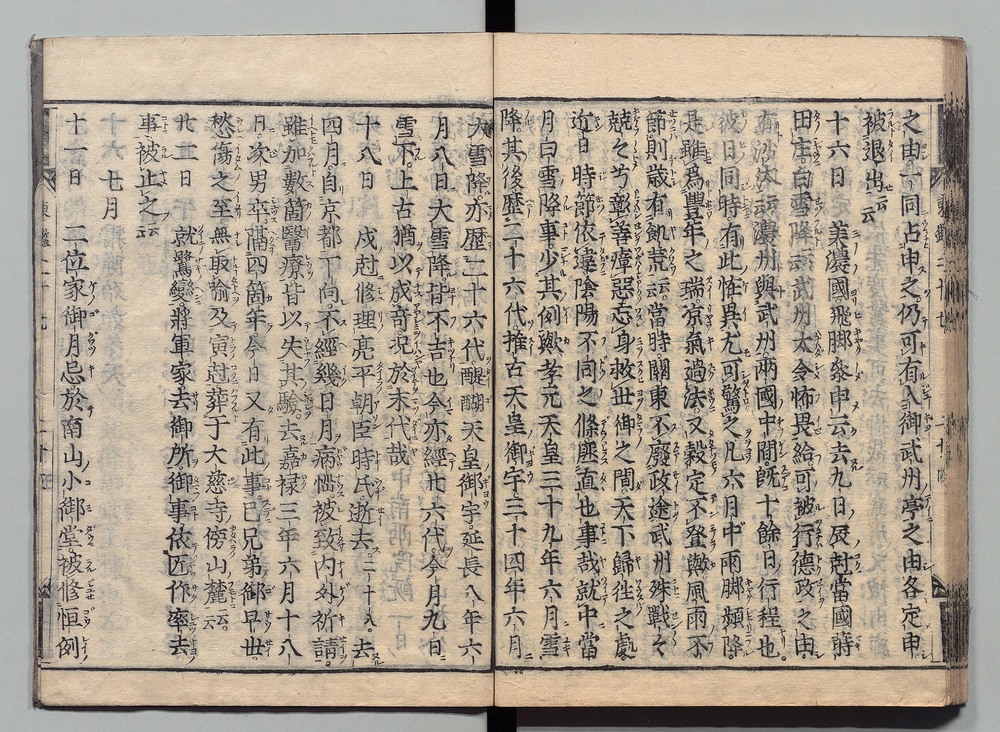 之由一同占申之仍可有入御武州亭之由各定申
被退出云云
十六日 美濃國飛脚參申云去九日辰尅當國蒔
田庄白雪降云云武州太令怖畏給可被行德政之由
有沙汰云云濃州與武州兩國中間既十餘日行程也
彼日同時有此怪異尤可驚之凡六月中雨脚頻降
是雖爲豐年之瑞京氣過法又穀定不登歟風雨不
節則歲有飢荒云云當時關東不廢政途武州殊戰々
兢々兮彰善癉惡忘身救世御之間天下歸往之處
近日時節依違陰陽不同之條匪直也事哉就中當
月白雪降事少其例歟孝元天皇三十九年六月雪
降其後歷二十六代推古天皇御宇三十四年六月
大雪降亦歷二十六代醍醐天皇御宇延長八年六
月八日大雪降皆不吉也今亦經廿六代今月九日
雪下上古猶以成奇況於末代哉
十八日 戌尅修理亮平朝臣時氏逝去二十八去
四月自京都下向不經幾日月病惱被致內外祈請
雖加數箇醫療皆以失其驗去嘉祿三年六月十八
日次男卒隔四箇年今日又有此事已兄弟御早世
愁傷之至無取喩及寅尅葬于大慈寺傍山麓云云
廿二日 就鷲變將軍家去御所御事依匠作卒去
事被止之云云
十六七月
十一日 二位家御月忌於南山小御堂被修恒例